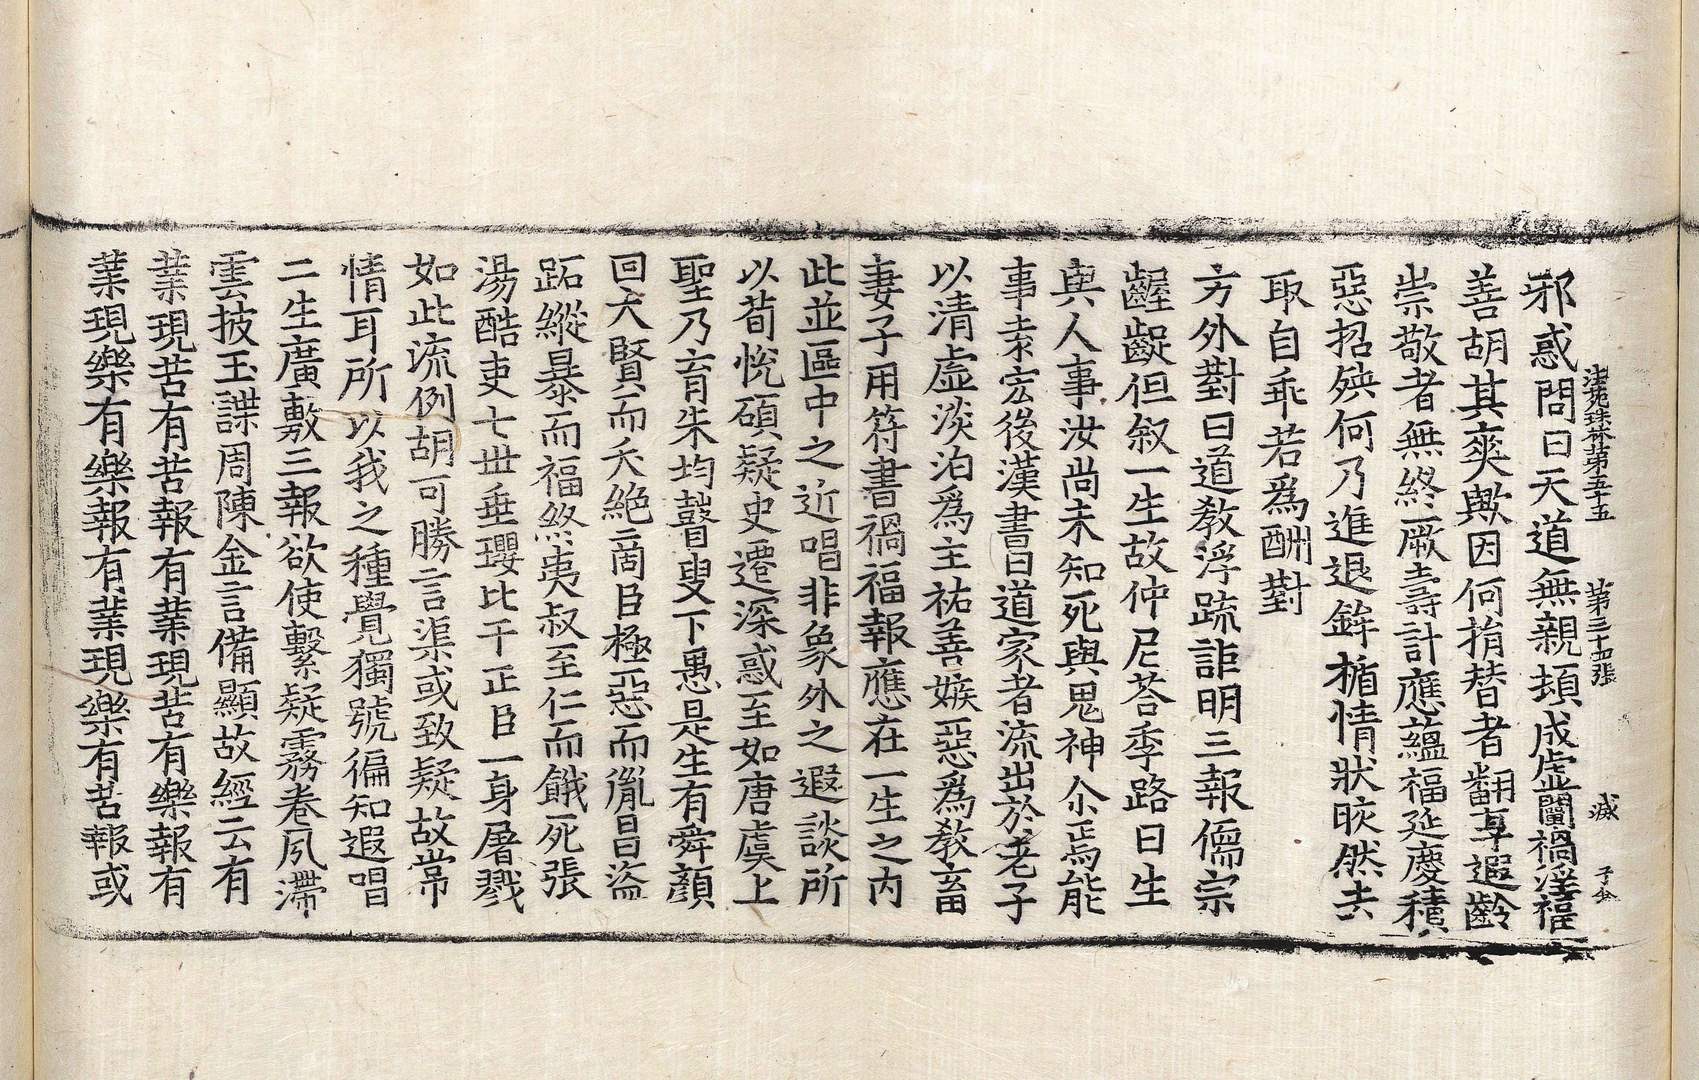 法苑珠林第五十五　第三十四張　滅
邪惑問曰天道無親頃成虛闡禍淫福
善胡其爽歟因何捎替者翻享遐齡
崇敬者無終厥壽計應蘊福延慶積
惡招殃何乃進退鉾楯情狀昳然去
取自乖若爲酬對
方外對曰道教浮疏詎明三報儒宗
齷齪但叙一生故仲尼荅季路曰生
與人事汝尚未知死與鬼神尒焉能
事宏後漢書曰道家者流出於老子
以清虛淡泊爲主祐善嫉惡爲教畜
妻子用符書禍福報應在一生之内
此並區中之近唱非象外之遐談所
以荀悅碩疑史遷深惑至如唐虞上
聖乃育朱均瞽叟下愚是生有舜顔
回大賢而夭絶商臣極惡而胤昌盜
跖縱暴而福終夷叔至仁而餓死張
湯酷吏七丗垂瓔比干正臣一身屠戮
如此流例胡可勝言渠或致疑故常
情耳所以我之種覺獨號徧知遐唱
二生廣敷三報欲使繫疑霧卷夙滯
雲披玉諜周陳金言備顯故經云有
業現苦有苦報有業現苦有樂報有
業現樂有樂報有業現樂有苦報或